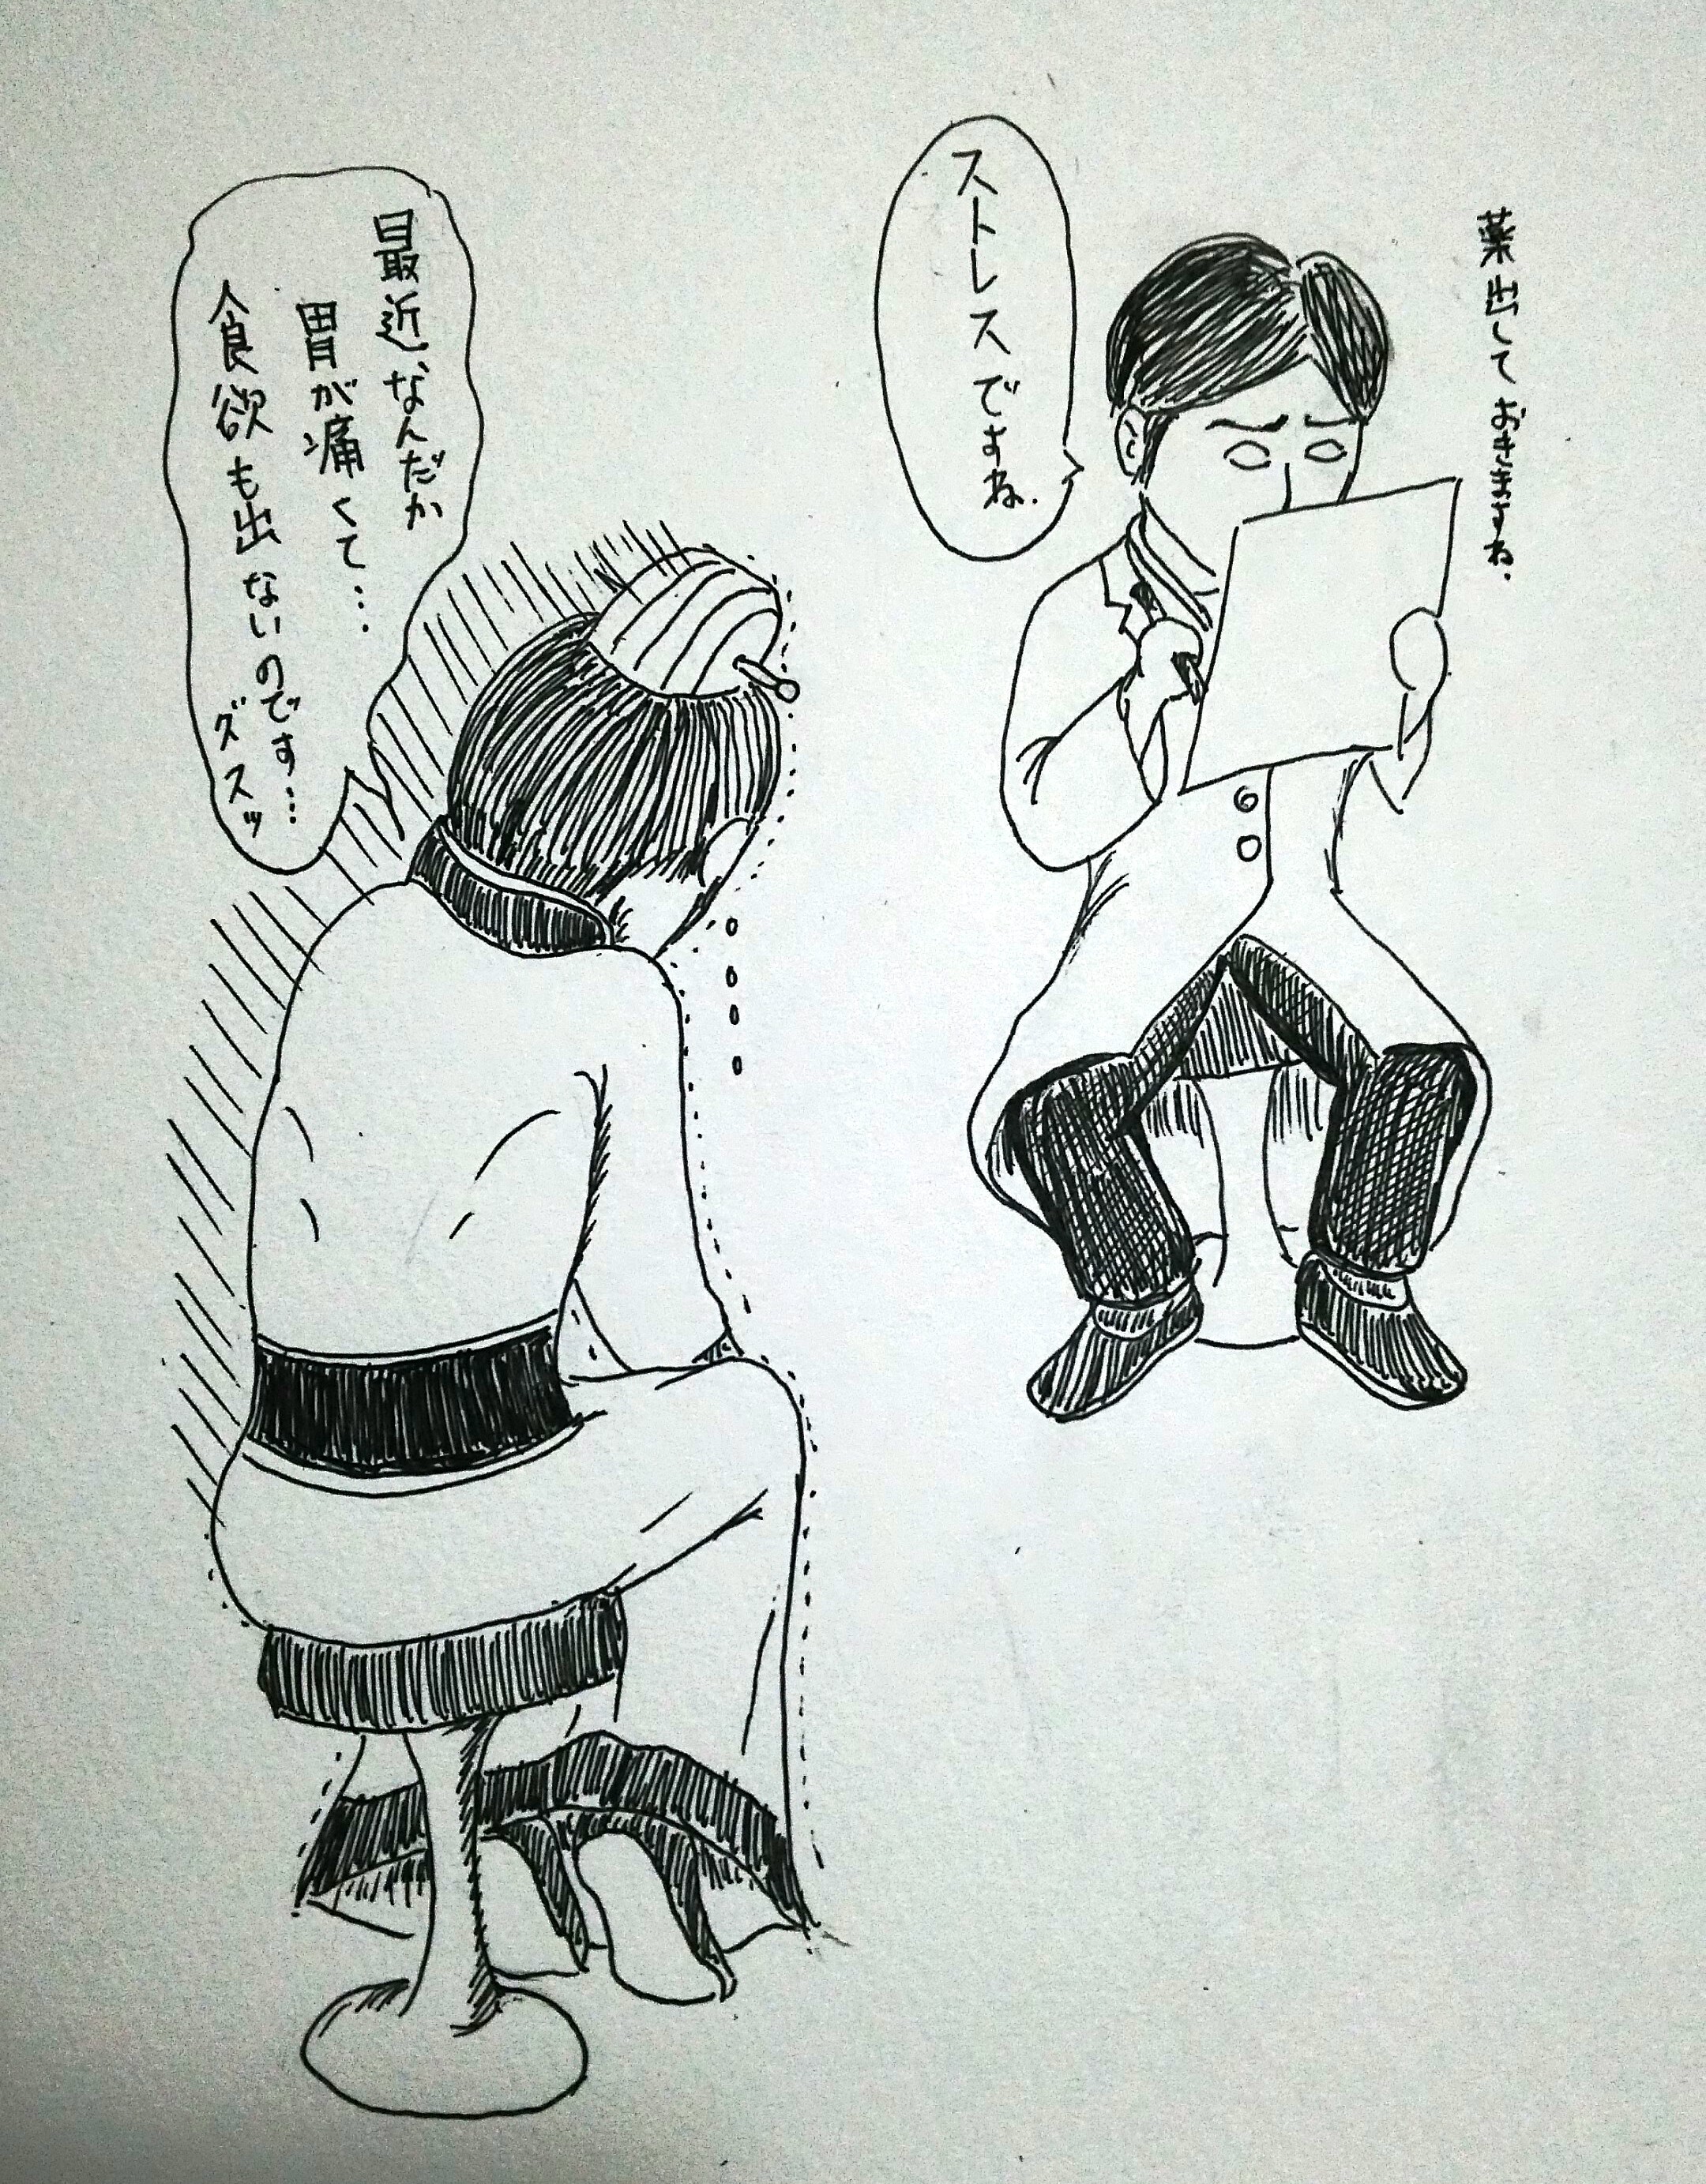 薬出しておきますね.
ストレスですね.
最近なんだか
胃が痛くて…
食欲も出ないのです…
グスッ